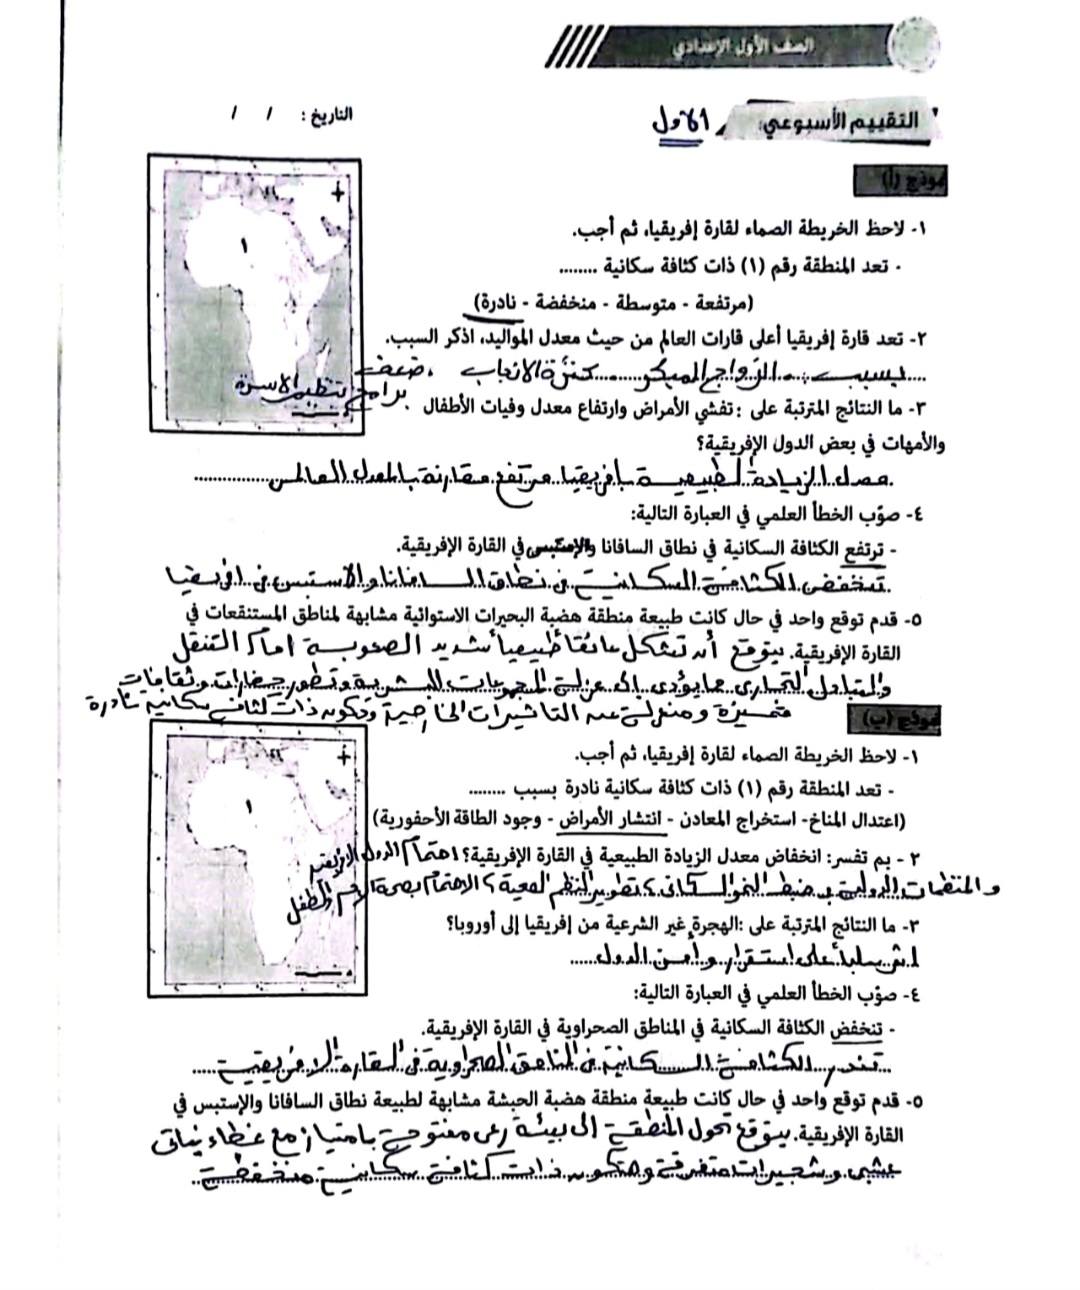 الصف الأول الإعدادي
التقييم الأسبوعي: الأول
التاريخ: / /
نموذج (أ)
١- لاحظ الخريطة الصماء لقارة إفريقيا، ثم أجب.
- تعد المنطقة رقم (١) ذات كثافة سكانية ........
(مرتفعة - متوسطة - منخفضة - نادرة)
٢- تعد قارة إفريقيا أعلى قارات العالم من حيث معدل المواليد، اذكر السبب.
بسبب الزواج المبكر كثرة الانجاب ، ضعف
برامج تنظيم الاسرة
٣- ما النتائج المترتبة على : تفشي الأمراض وارتفاع معدل وفيات الأطفال
والأمهات في بعض الدول الإفريقية؟
معدل الزيادة الطبيعية بافريقيا مرتفع مقارنة بالمعدل العالمى
٤- صوّب الخطأ العلمي في العبارة التالية:
- ترتفع الكثافة السكانية في نطاق السافانا والإستبس في القارة الإفريقية.
تنخفض الكثافة السكانية فى نطاق السافانا والاستبس فى افريقيا
٥- قدم توقع واحد في حال كانت طبيعة منطقة هضبة البحيرات الاستوائية مشابهة لمناطق المستنقعات في
القارة الإفريقية. يتوقع أن تشكل عائقا طبيعيا شديد الصعوبة امام التنقل
والتبادل التجارى مما يؤدى الى عزلة المجموعات البشرية وتطور حضارات وثقافات
متميزة ومنعزلة عن التاثيرات الخارجية وتكون ذات كثافة سكانية نادرة
نموذج (ب)
١- لاحظ الخريطة الصماء لقارة إفريقيا، ثم أجب.
- تعد المنطقة رقم (١) ذات كثافة سكانية نادرة بسبب ........
(اعتدال المناخ- استخراج المعادن - انتشار الأمراض - وجود الطاقة الأحفورية)
٢ - بم تفسر: انخفاض معدل الزيادة الطبيعية في القارة الإفريقية؟ اهتمام الدول الافريقية
والمنظمات الدولية بضبط النمو السكانى ، تطوير النظم الصحية ، الاهتمام بصحة الام والطفل
٣- ما النتائج المترتبة على :الهجرة غير الشرعية من إفريقيا إلى أوروبا؟
اثر سلبا على استقرار وامن الدول
٤- صوّب الخطأ العلمي في العبارة التالية:
- تنخفض الكثافة السكانية في المناطق الصحراوية في القارة الإفريقية.
تندر الكثافة السكانية فى المناطق الصحراوية فى القارة الافريقية
٥- قدم توقع واحد في حال كانت طبيعة منطقة هضبة الحبشة مشابهة لطبيعة نطاق السافانا والإستبس في
القارة الإفريقية. يتوقع تحول المنطقة الى بيئة رعى مفتوحة بامتياز مع غطاء نباتى
عشبى وشجيرات متفرقة وتكون ذات كثافة سكانية منخفضة
١
١